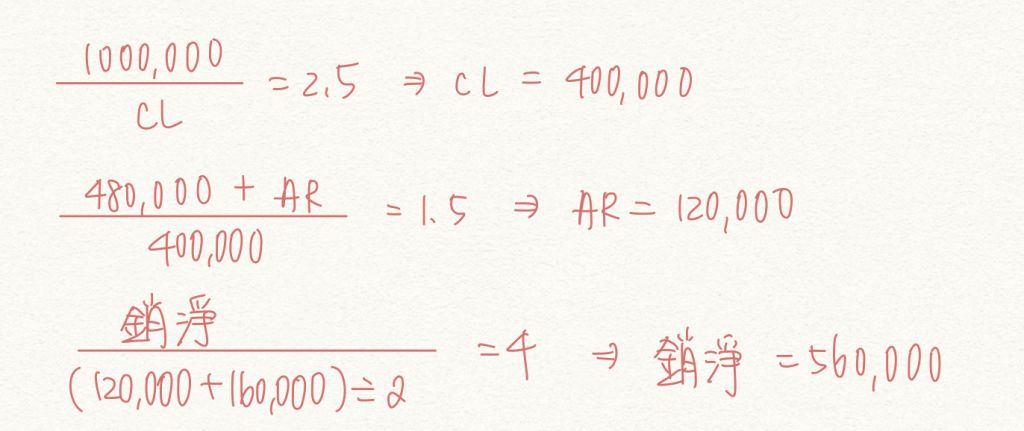 1000,000 / CL = 2.5 ⇒ CL = 400,000
480,000 + AR / 400,000 = 1.5 ⇒ AR = 120,000
銷淨 / (120,000+160,000)÷2 = 4 ⇒ 銷淨 = 560,000